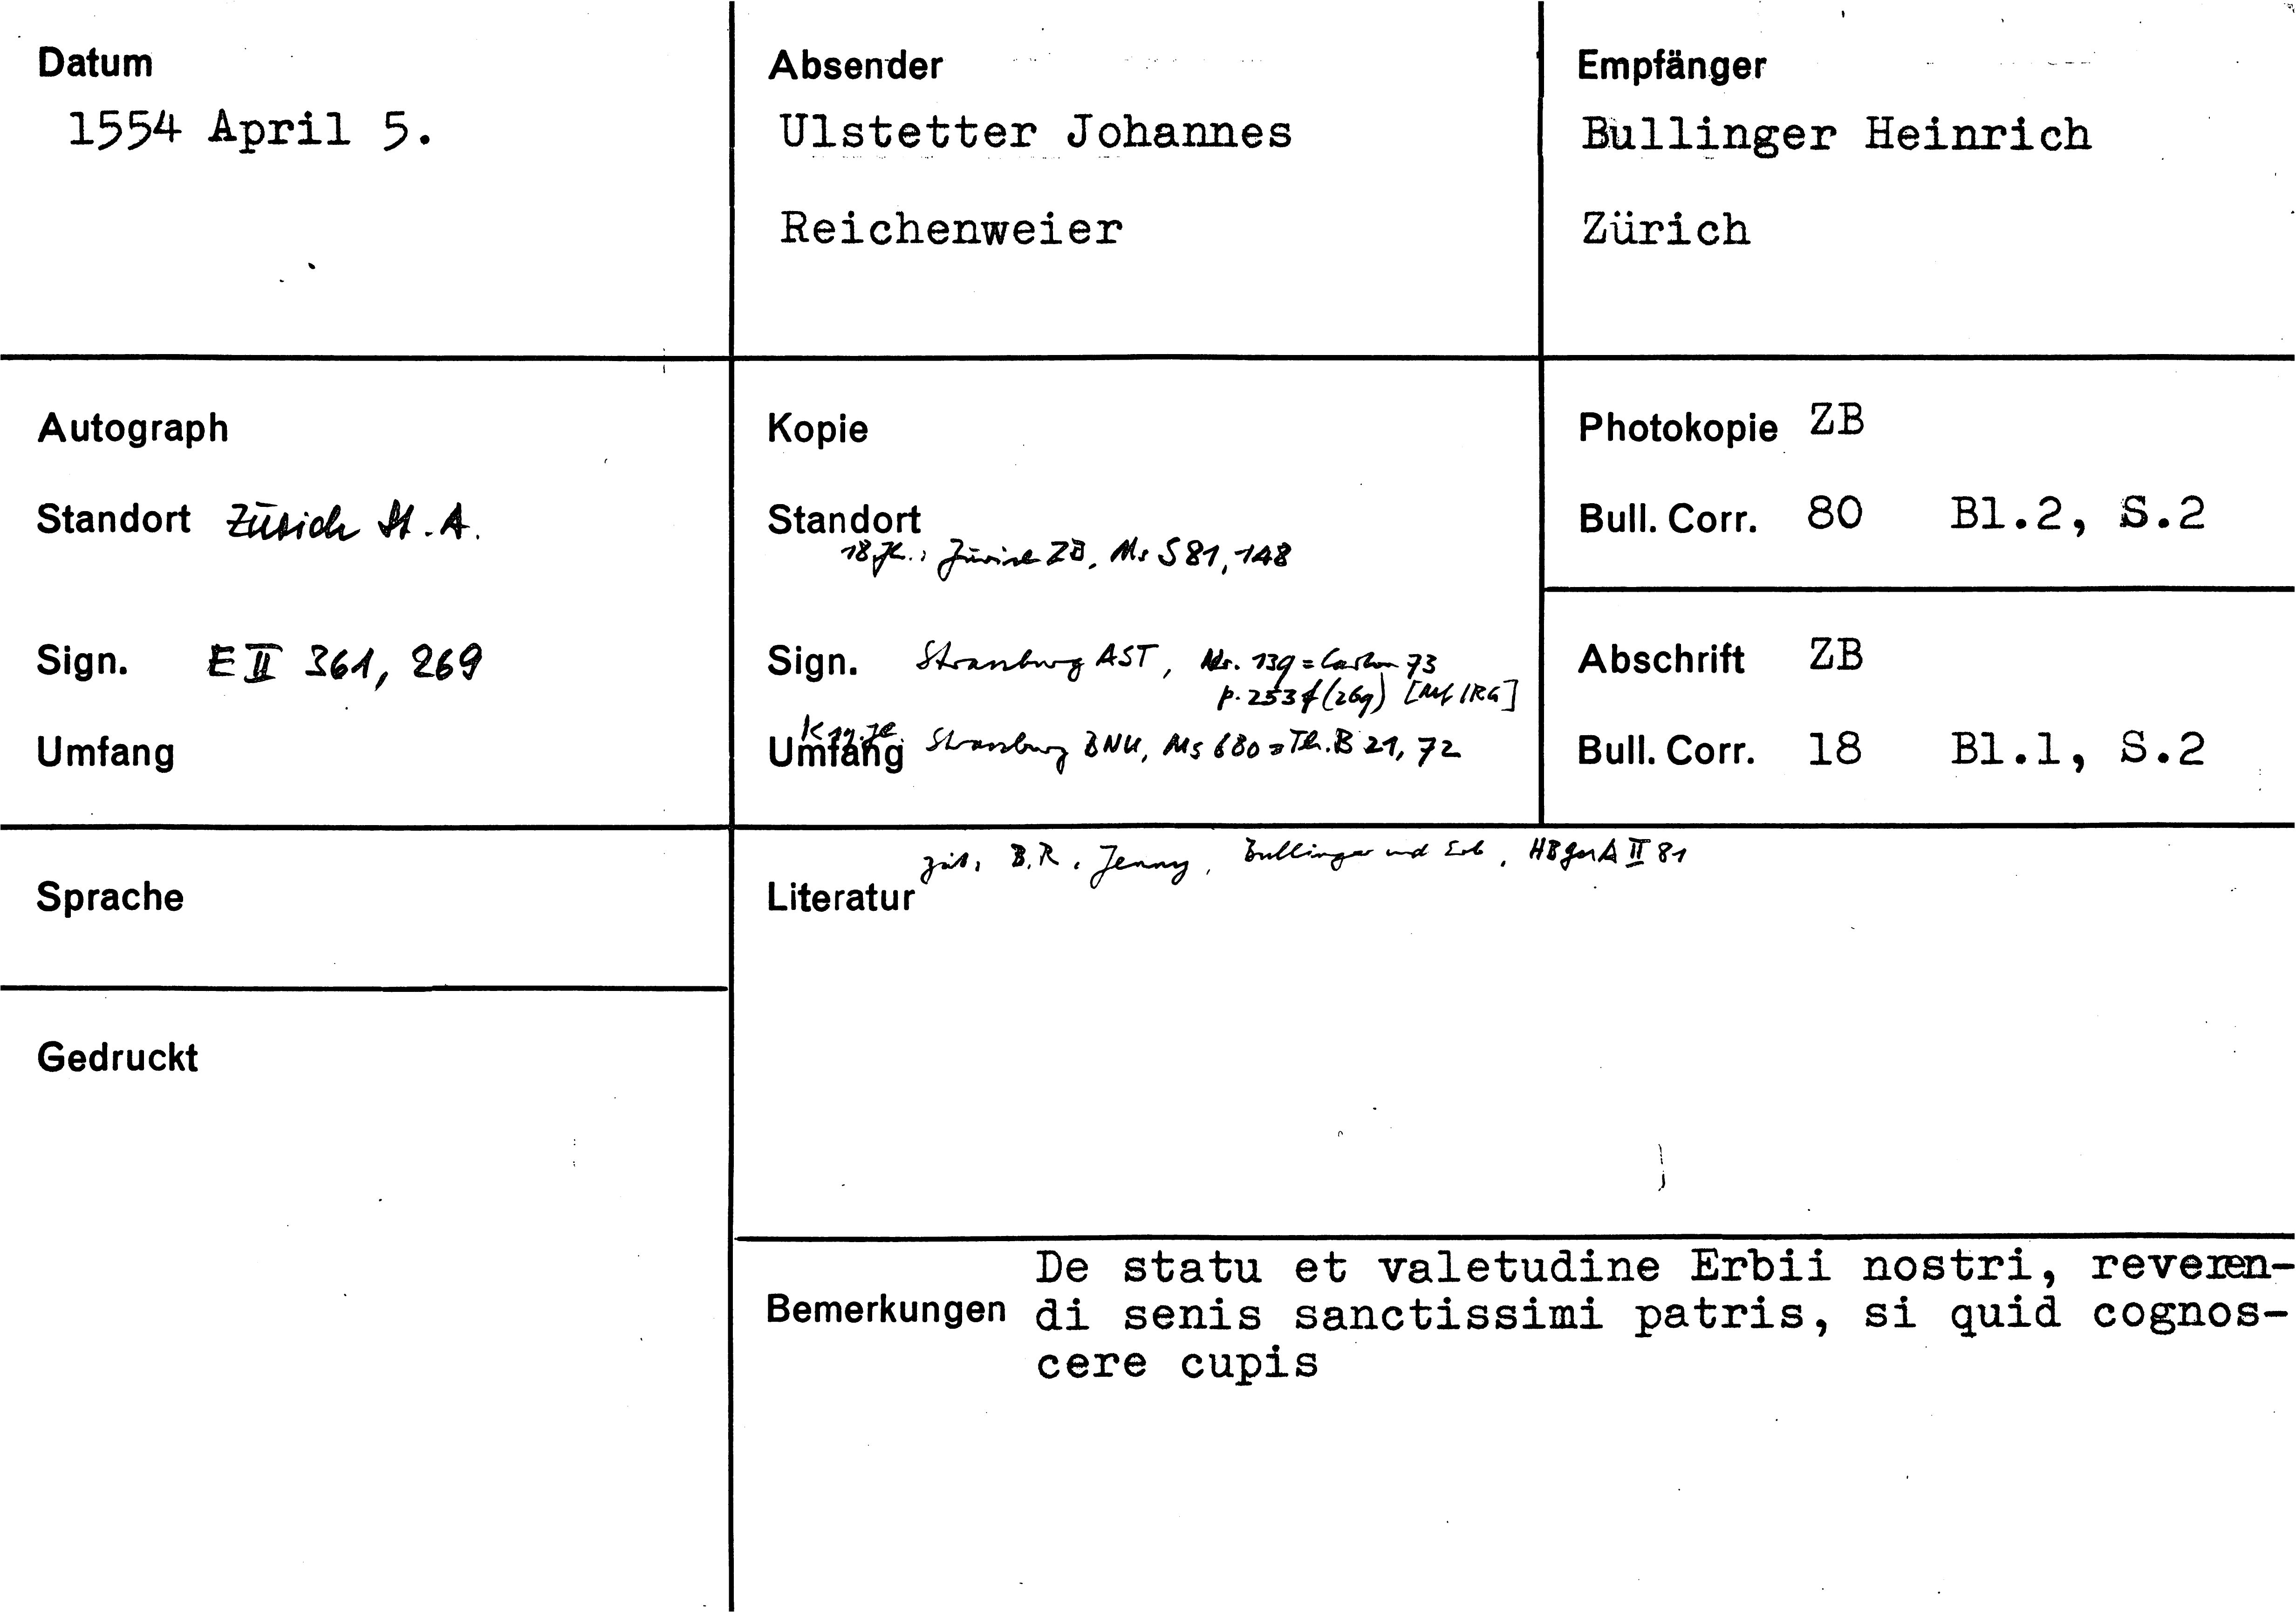 Datum
1554 April 5.
Absender
Ulstetter Johannes
Reichenweier
Empfänger
Bullinger Heinrich
Zürich
Autograph
Standort Zürich St. A.
Sign. E II 361, 269
Umfang
Kopie
Standort
18. Jh.: Zürich ZB, Ms S 81, 148
Sign. Strassburg AST, Nr. 139 = Carton 73
p. 253 f (269) [ IRG]
Umfang Strassburg BNU, Ms 680 = Th. B 21, 72
Photokopie ZB
Bull. Corr. 80 Bl.2, S.2
Abschrift ZB
Bull. Corr. 18 Bl.1, S.2
Sprache
Gedruckt
zit. B.R. Jenny, Bullinger und Erb, HBGesA II 81
Literatur
De statu et valetudine Erbii nostri, reveren-
Bemerkungen di senis sanctissimi patris, si quid cognos-
cere cupis